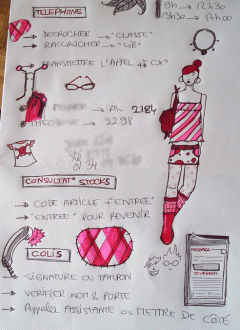 TELEPHONE
9h → 12h30
13h30 → 17h00
→ DECROCHER → "CLASSE"
→ RACCROCHER → "LIB"
→ TRANSMETTRE L'APPEL → CX
→ 2184
→ 2298
CONSULTAT° STOCKS
→ CODE ARTICLE + "ENTREE"
→ "ENTREE" POUR REVENIR
COLIS
→ SIGNATURE OU TAMPON
→ VERIFIER NOM & PORTE
→ Appeler ASSISTANTE OU METTRE DE COTÉ